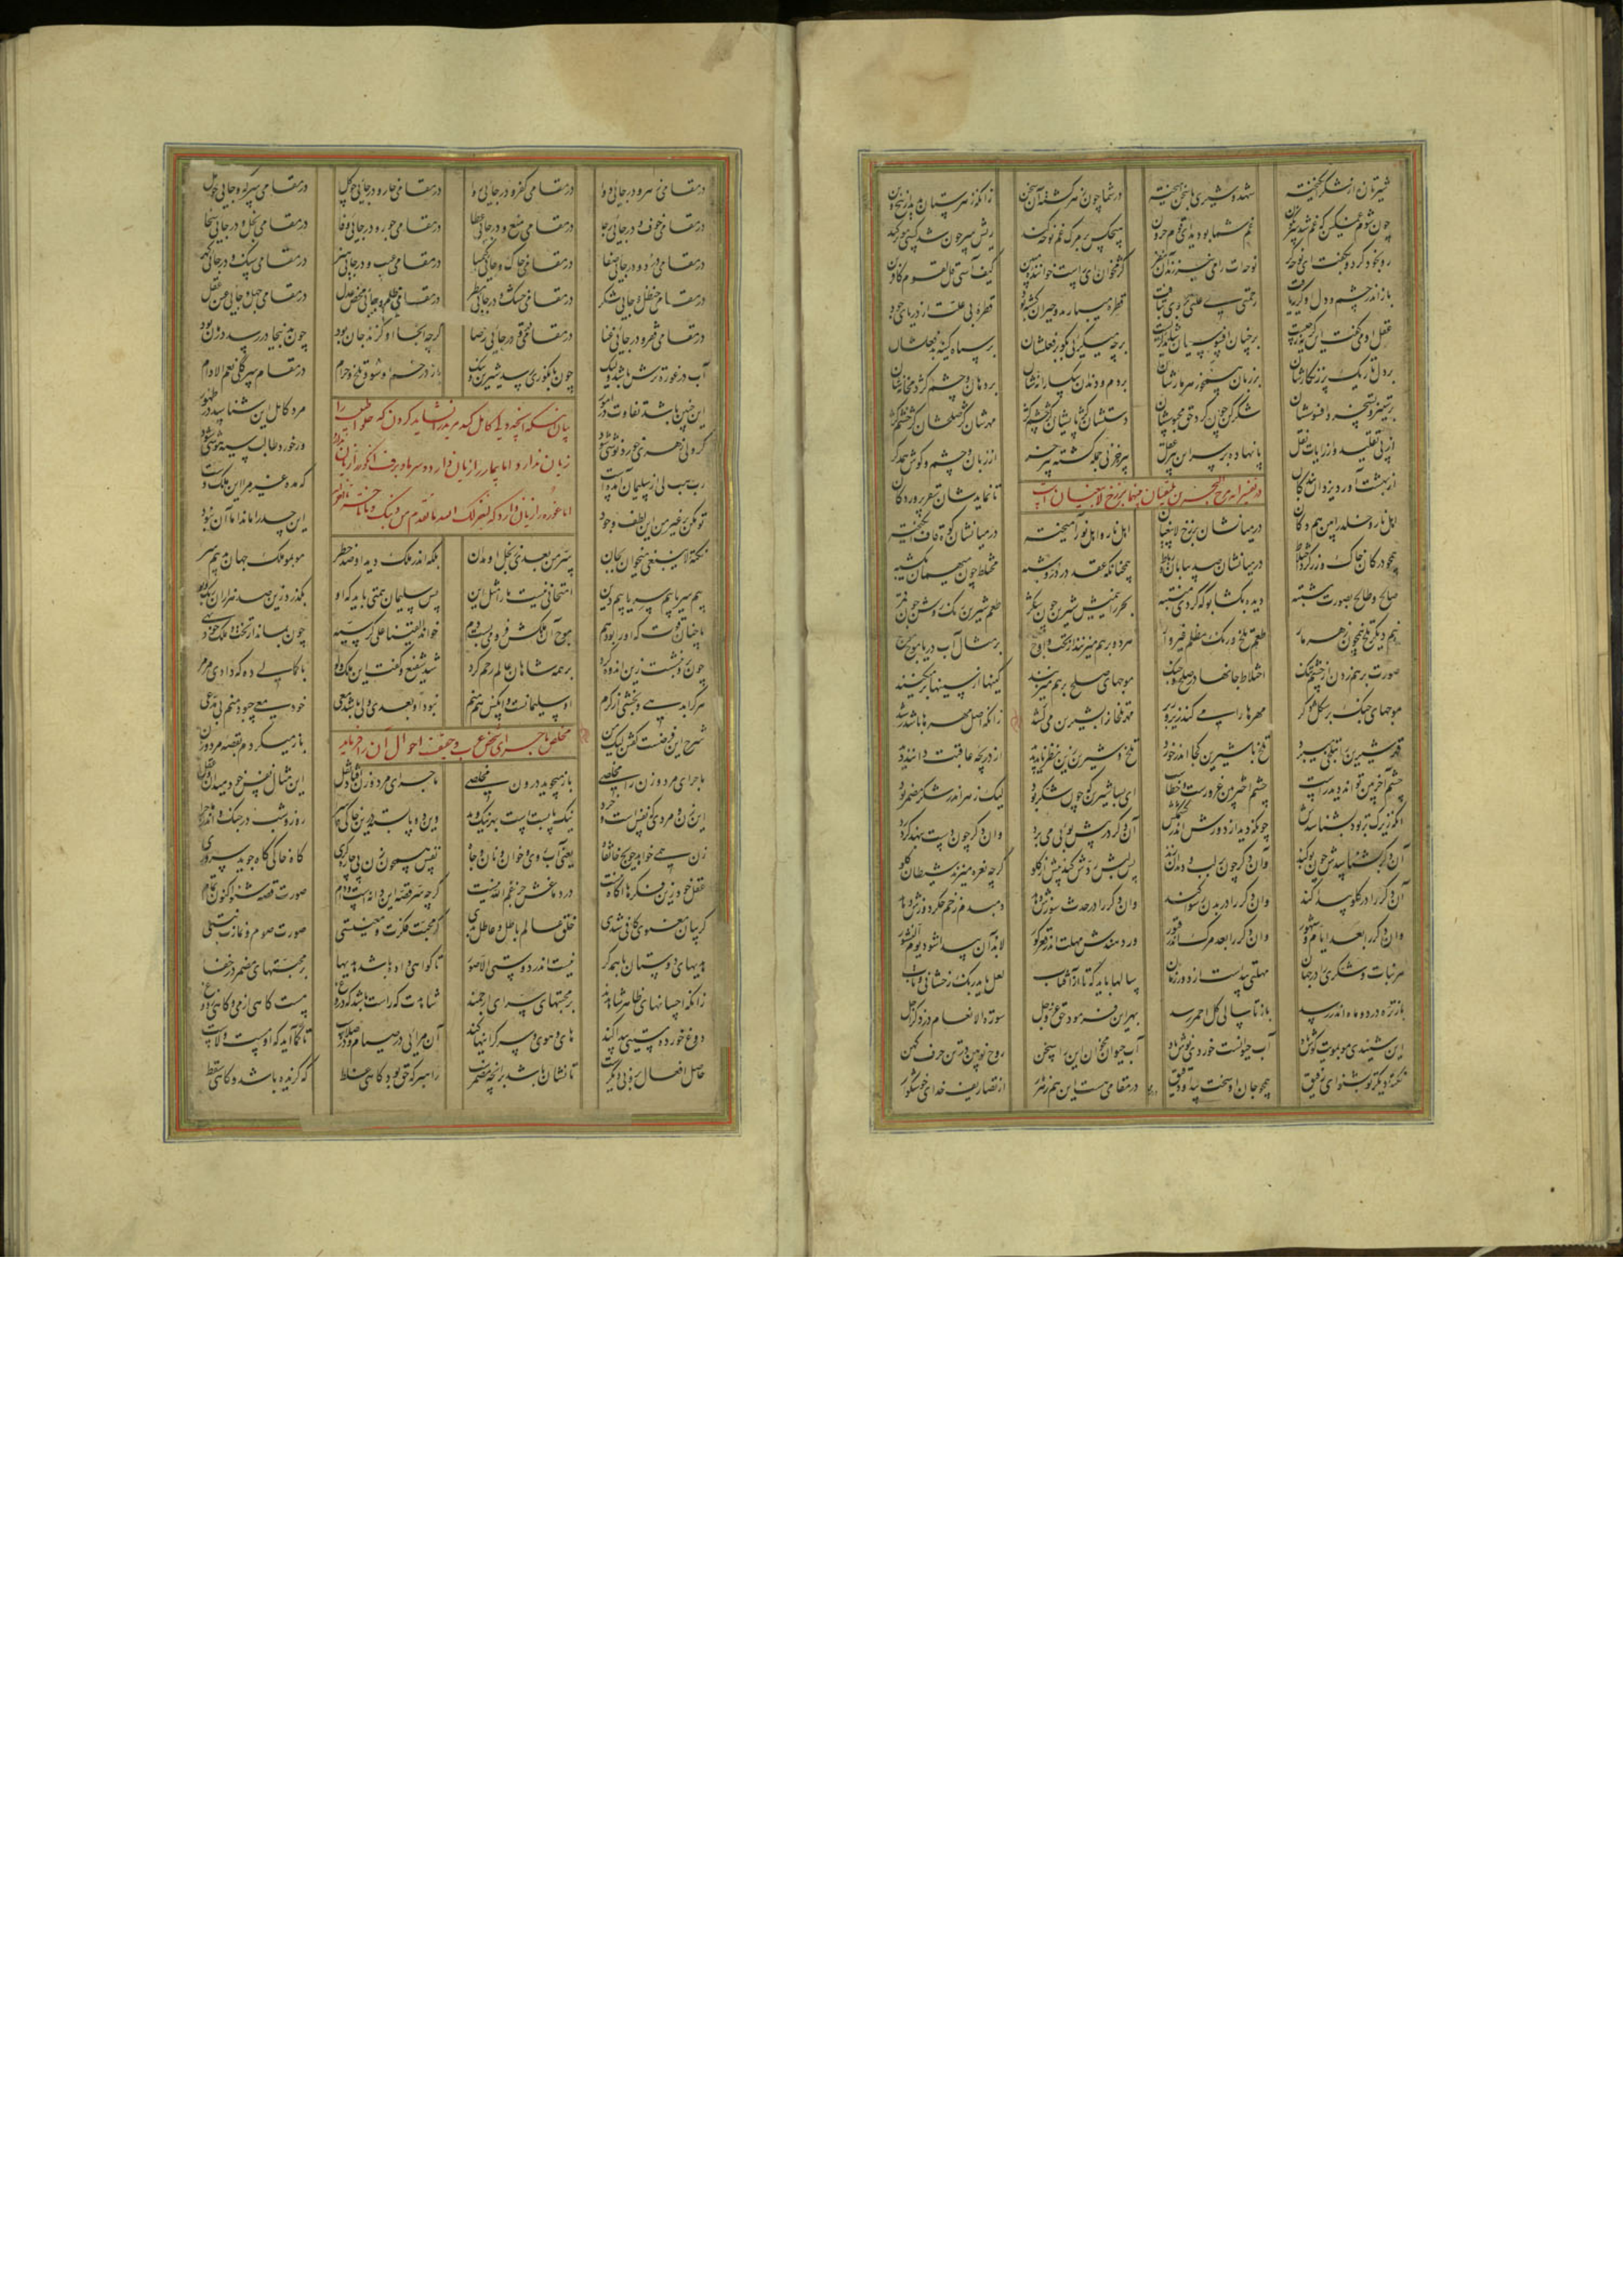 شیرتان از شکر انگیخته شهد و شیری با سخن آمیخته در شما چون زهر گشته آن سخن زانکه زهرستان بدید از بیخ و بن
چون شوم غمگین که غم شد سرنگون غم شما بودید ای قوم حرون هیچکس بر مرگ غم نوحه کند ریش سر چون شد کسی مو برکند
رو بخود کرد و بگفت ای نوحه‌گر نوحه‌ات را می‌نیرزند آن نفر کژ مخوان ای راست خواننده مبین کیف آسی قل لقوم کافرین
باز اندر چشم و دل او گریه یافت رحمتی بی علتی در وی بتافت قطره می‌بارید و حیران گشته بود قطره بی علت از دریای جود
عقل او می‌گفت این گریه ز چیست بر چنان افسوسیان شاید گریست بر چه می‌گریی بگو بر فعلشان بر سپاه کینه بد فعلشان
بر دل تاریک پر زنگارشان بر زبان همچو زهر مارشان بر دم و دندان سگسارانه‌شان بر دهان و چشم کژدم خانه‌شان
بر ستیز و تسخر و افسوسشان شکر کن چون کرد حق محبوسشان دستشان کژ پایشان کژ چشم کژ مهرشان کژ صلحشان کژ خشم کژ
از پی تقلید و از رایات نقل پا نهاده بر سر این پیر عقل پیر خر نی جمله گشته پیر خر از زبان و چشم و گوش همدگر
از بهشت آورد یزدان بندگان در تفسیر آیه مرج البحرین یلتقیان بینهما برزخ لا یبغیان تا نمایدشان سقر پروردگان
اهل نار و خلد را بین هم دکان در میانشان برزخ لا یبغیان اهل نار و اهل نور آمیخته در میانشان کوه قاف انگیخته
همچو در کان خاک و زر کرد اختلاط در میانشان صد بیابان و رباط همچنانکه عقد در در و شبه مختلط چون میهمان یکشبه
صالح و طالح بصورت مشتبه دیده بگشا بو که گردی منتبه بحر را نیمیش شیرین چون شکر طعم شیرین رنگ روشن چون قمر
نیم دیگر تلخ همچون زهر مار طعم تلخ و رنگ مظلم قیروار هر دو بر هم می‌زنند از تحت و اوج بر مثال آب دریا موج موج
صورت بر هم زدن از جسم تنگ اختلاط جانها در صلح و جنگ موجهای صلح بر هم می‌زند کینها از سینها بر می‌کند
موجهای جنگ بر شکل دگر مهرها را می‌کند زیر و زبر مهر تلخانرا بشیرین می‌کشد زانکه اصل مهرها باشد رشد
قهر شیرین را بتلخی می‌برد تلخ با شیرین کجا اندر خورد تلخ و شیرین زین نظر ناید پدید از دریچه عاقبت دانند دید
چشم آخربین تواند دید راست چشم آخربین غرورست و خطاست ای بسا شیرین که چون شکر بود لیک زهر اندر شکر مضمر بود
آنکه زیرک‌تر بود بشناسدش چونکه دید از دورش اندر کشمکش آن دگر در پیش بوئی می‌برد وان دگر چون دست بنهد گرد
آن دگر بشناسدش چون بو کند وان دگر چون بر لب و دندان زند پس لبش ردش کند پیش از گلو گرچه نعره می‌زند شیطان کلوا
آن دگر را در گلو پیدا کند وان دگر را در بدن رسوا کند وان دگر را در حدث سوزش دهد دمبدم زخم جگردوزش دهد
وان دگر را بعد ایام و شهور وان دگر را بعد مرگ اندر قبور ور دهندش مهلت اندر قعر گور لابد آن پیدا شود یوم النشور
هر نبات و شکری را در جهان مهلتی پیداست از دور زمان سالها باید که تا از آفتاب لعل یابد رنگ و رخشانی و تاب
باز تره در دو ماه اندر رسد باز تا سالی گل احمر رسد بهر این فرمود حق عز و جل سوره الانعام در ذکر اجل
این شنیدی مو بمویت گوش باد آب حیوانست خوردی نوش باد آب حیوان خوان مخوان این را سخن روح نو بین در تن حرف کهن
نکته دیگر تو بشنو ای رفیق همچو جان او سخت پیدا و دقیق در مقامی هست این هم زهر مار از تصاریف خدای خوشگوار
در مقامی زهر و در جائی دوا در مقامی کفر و در جائی روا در مقامی خار و در جائی چو گل در مقامی سرکه و جائی چو مل
در مقامی خوف و در جائی رجا در مقامی منع و در جائی عطا در مقامی جور و در جائی وفا در مقامی بخل و در جائی سخا
در مقامی درد و در جائی صفا در مقامی خاک و جائی کیمیا در مقامی عیب و در جائی هنر در مقامی سنگ و در جائی گهر
در مقامی حنظل و جائی شکر در مقامی خشک و در جائی مطر در مقامی ظلم و جائی محض عدل در مقامی جهل و جائی عین عقل
در مقامی فقر و در جائی غنا در مقامی قهر و در جائی رضا گرچه آنجا او گزند جان بود چون بدینجا در رسد درمان بود
آب در غوره ترش باشد ولیک چون بانگوری رسد شیرین و نیک باز در خم او شود تلخ و حرام در مقام سرکگی نعم الادام
این چنین باشد تفاوت در امور بیان اینکه آنچه ولی کامل کند مرید را نشاید کردن که حلوا طبیب را مرد کامل این شناسد در ظهور
گر ولی زهری خورد نوشی شود زیان ندارد اما بیمار را زیان دارد و سرما و برف انگور را زیان ندارد ور خورد طالب سیه هوشی شود
رب هب لی از سلیمان آمده است اما غوره را زیان دارد که لیغفر لک الله ما تقدم من ذنبک و ما تاخر نشده که مده غیر مرا این ملک و دست
تو مکن با غیر من این لطف و جود این حسد را ماند اما آن نبود
نکته لا ینبغی می‌خوان بجان سر من بعدی ز بخل او مدان بلکه اندر ملک دید او صد خطر مو بمو ملک جهان بد بیم سر
بیم سر با بیم سر با بیم دین امتحانی نیست ما را مثل این پس سلیمان همتی باید که او بگذرد زین صد هزاران رنگ و بو
با چنان قوت که او را بود هم موج آن ملکش فرو می‌بست دم خوانده القینا علی کرسیه چون بماند از تخت و ملک خود تهی
چون برو بنشست زین اندوه گرد بر همه شاهان عالم رحم کرد شد شفیع و گفت این ملک و لوا با کمالی ده که دادی مر مرا
هر کرا بدهی و بخشی از کرم او سلیمانست و آنکس هم منم نبود او بعدی ولی باشد معی خود معی چبود منم بی مدعی
شرح این فرضست گفتن لیک من مخلص ماجرای شخص عرب و جفت احوال آن را فرماید باز می‌گردم بقصه مرد و زن
ماجرای مرد و زن را مخلصی باز میجوید درون مخلصی ماجرای مرد و زن افتاد نقل این مثال نفس خود می‌دان و عقل
این زن و مردی که نفس است و خرد نیک بایستست بهر نیک و بد وین دو بایسته درین خاکی سرا روز و شب در جنگ و اندر ماجرا
زن همی خواهد حویج خانقاه یعنی آب رو و خوان و نان و جاه نفس همچون زن پی چاره‌گری گاه خاکی گاه جوید سروری
عقل خود زین فکرها آگاه نیست در دماغش جز غم الله نیست گرچه سر قصه این دانه است و دام صورت قصه شنو اکنون تمام
گر بیان معنوی کافی شدی خلق عالم باطل و عاطل بدی گر محبت فکرت و معنیستی صورت صوم و نمازت نیستی
هدیهای دوستان با همدگر نیست اندر دوستی الا صور تا گواهی داده باشد هدیها بر محبتهای مضمر در خفا
زانکه احسانهای ظاهر شاهدند بر محبتهای سر ای ارجمند شاهدت گه راست باشد گه دروغ مست گاهی از می و گاهی ز دوغ
دوغ خورده مستیی پیدا کند های و هوی و سر گرانیها کند آن مرائی در صیام و در صلاست تا گمان آید که او مست ولاست
حاصل افعال برونی دیگرست تا نشان باشد بر آنچه مضمرست راهبر گه حق بود گاهی غلط گه گزیده باشد و گاهی سقط